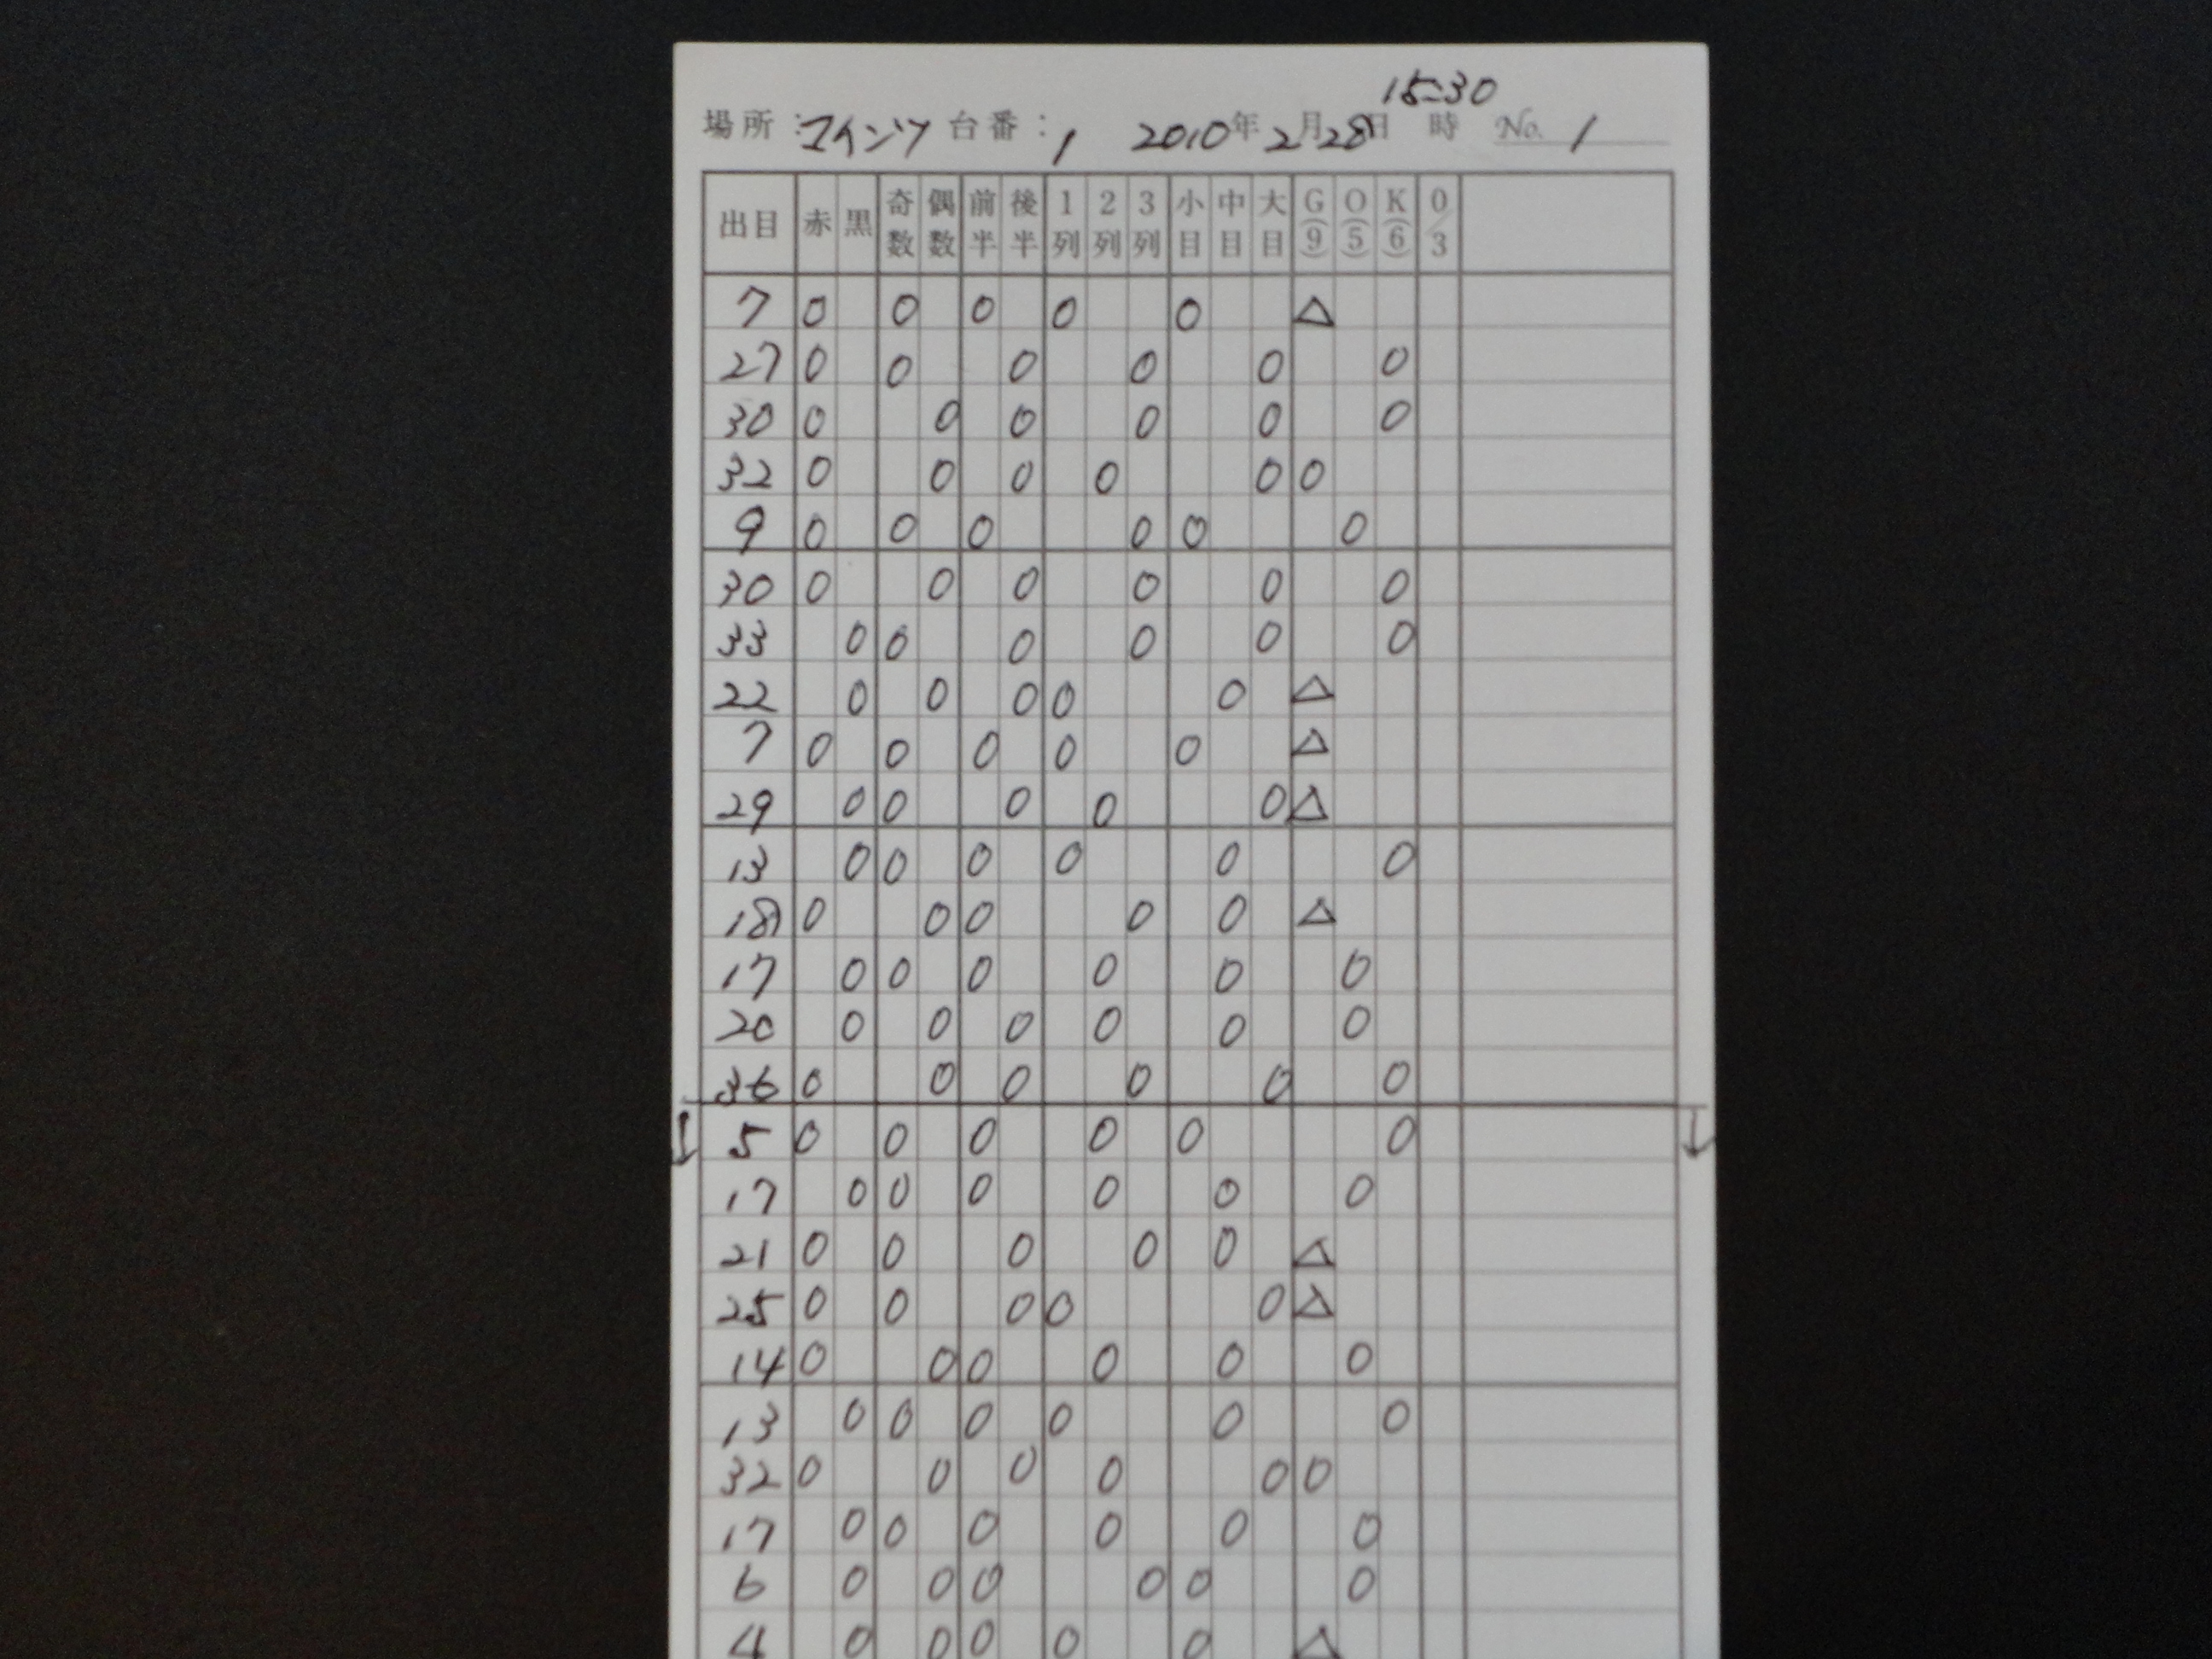 15:30
場所:マインツ 台番:1 2010年2月28日 時 No. 1
出目 赤 黒 奇数 偶数 前半 後半 1列 2列 3列 小目 中目 大目 G(9) O(5) K(6) 0/3
7 0 0 0 0 0 △
27 0 0 0 0 0 0
30 0 0 0 0 0 0
32 0 0 0 0 0 0
9 0 0 0 0 0 0
30 0 0 0 0 0 0
33 0 0 0 0 0 0
22 0 0 0 0 0 △
7 0 0 0 0 0 △
29 0 0 0 0 0 △
13 0 0 0 0 0 0
18 0 0 0 0 0 △
17 0 0 0 0 0 0
20 0 0 0 0 0 0
36 0 0 0 0 0 0
↓ 5 0 0 0 0 0 0 ↓
17 0 0 0 0 0 0
21 0 0 0 0 0 △
25 0 0 0 0 0 △
14 0 0 0 0 0 0
13 0 0 0 0 0 0
32 0 0 0 0 0 0
17 0 0 0 0 0 0
6 0 0 0 0 0 0
4 0 0 0 0 0 △